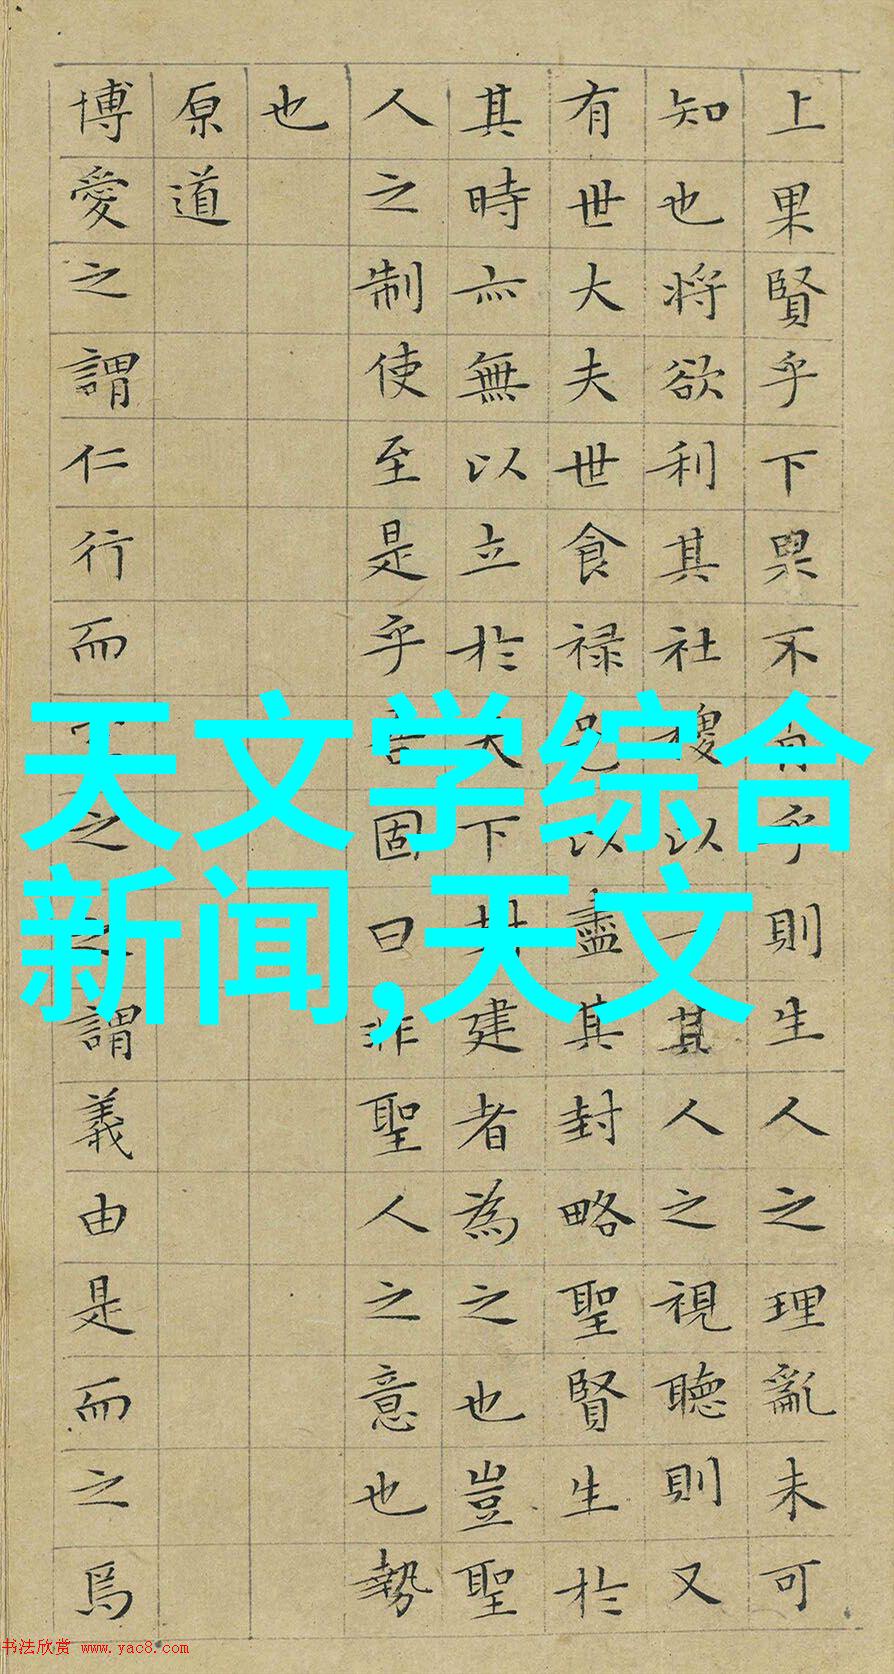 上果賢乎下果不有乎則生人之理亂未可
知也将欲利其社稷以一其人之視聽則又
有世大夫世食禄邑以盡其封略聖賢生於
其時亦無以立於天下封建者為之也豈聖
人之制使至是乎吾固曰非聖人之意也勢
也
原道
博愛之謂仁行而之之謂義由是而之焉
天文学综合
新闻,天文
书法欣赏 www.yac8.com